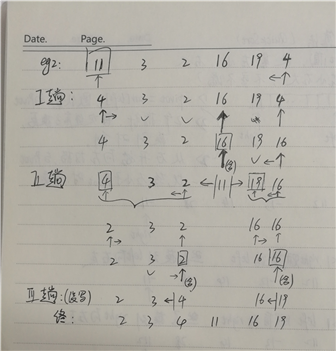 Date. Page.
eg2: 11 3 2 16 19 4
I趟: 4 3 2 16 19 4
4 3 2 16 19 16
(多)
II趟 4 3 2 11 19 16
2 3 2 16 16
2 3 2 16 16
(多) (多)
III趟: 2 3 4 16 19
终: 2 3 4 11 16 19